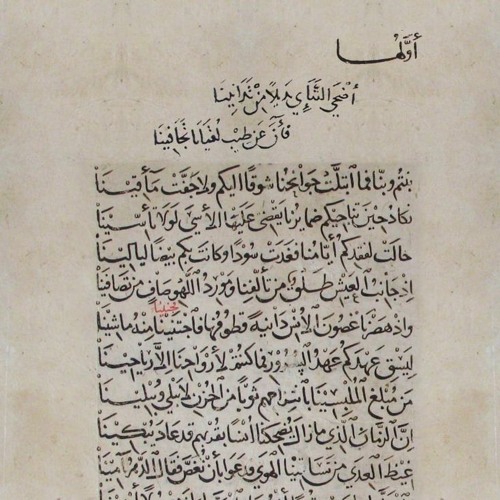 أولها
أضحى التنائي بديلا من تدانينا
فأن عن طيب لقيانا تجافينا
بنتم وبنا فما ابتلت جوانحنا شوقا اليكم ولا جفت مآقينا
نكاد حين تناجيكم ضمايرنا يقضي علينا الأسى لولا تأسينا
حالت لفقدكم أيامنا فغدت سودا وكانت بكم بيضا ليالينا
اذ جانب العيش طلق من تألفنا ومورد اللهو صاف من تصافينا
واذ هصرنا غصون الأنس دانية قطوفها فاجتنينا منه ماشينا
ليسق عهدكم عهد السرور فما كنتم لأرواحنا الا رياحينا
من مبلغ الملبسينا بانتزاحهم ثوبا من الحزن لا يبلى ويبلينا
ان الزمان الذي ما زال يضحكنا أنسا بقربهم قد عاد يبكينا
غيظ العدى من تساقينا الهوى فدعوا بأن نغص فقال الدهر آمينا